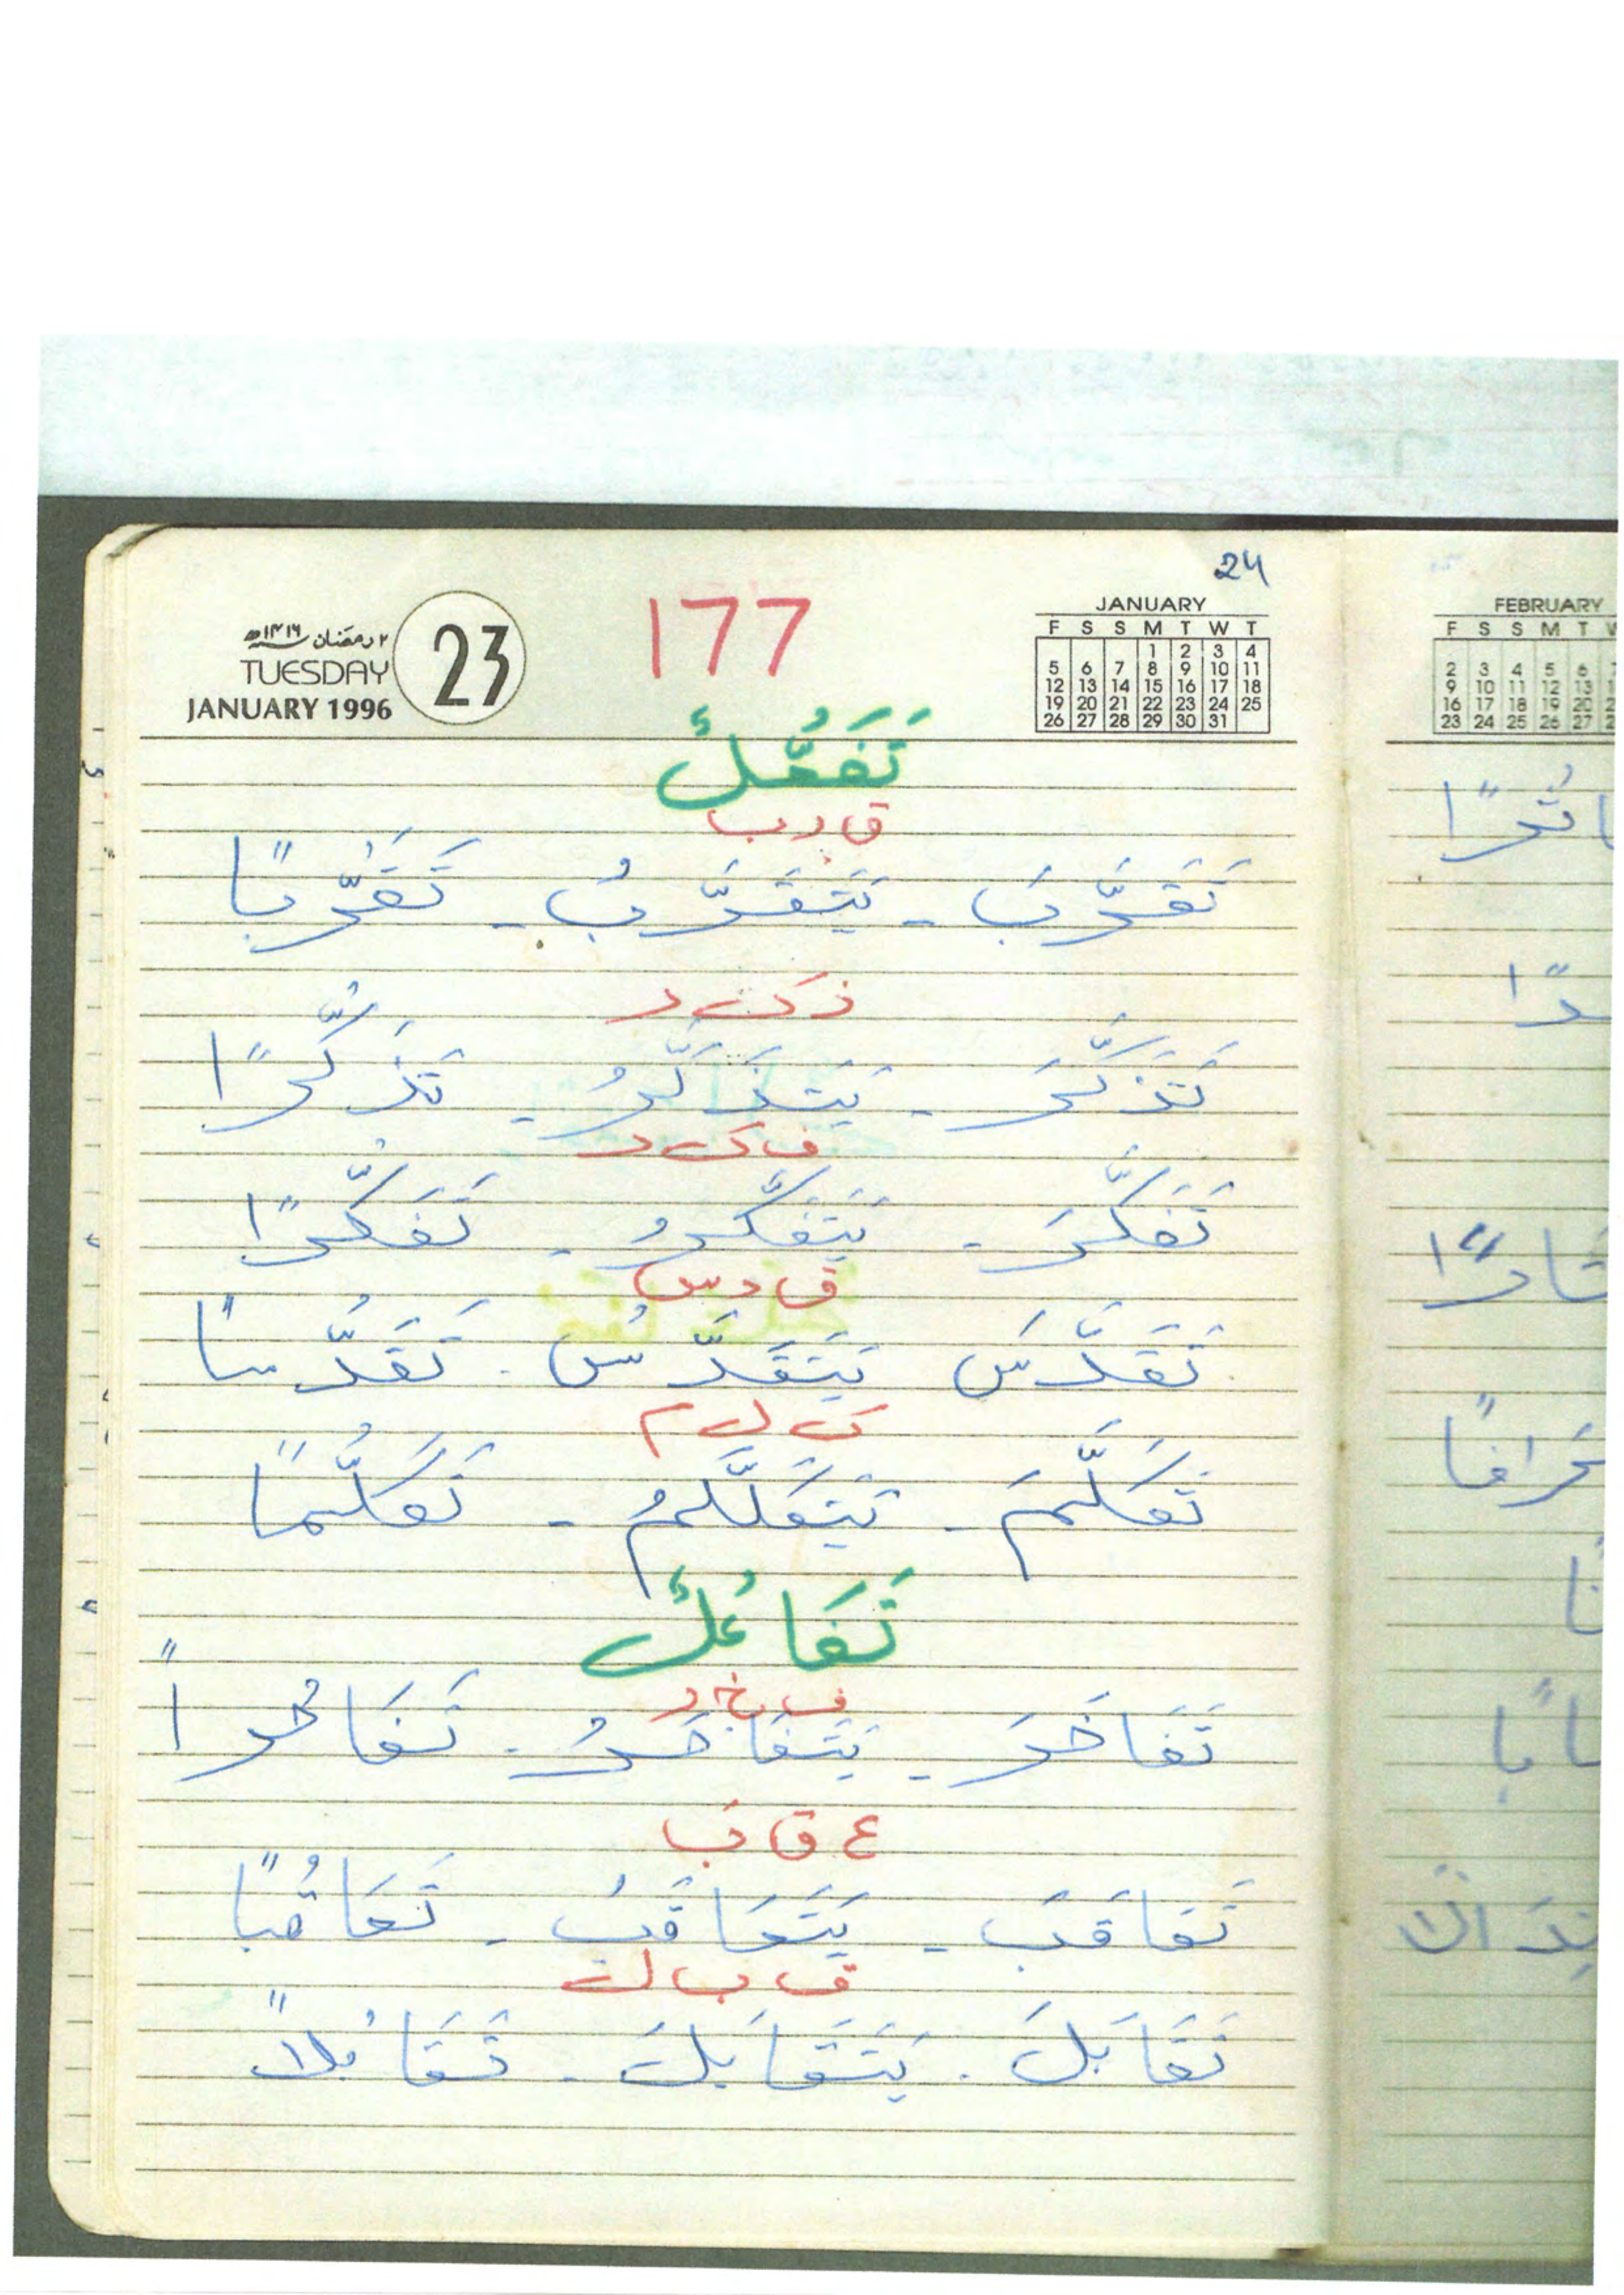 24
177
٢ رمضان ١٤١٦ هـ
TUESDAY
JANUARY 1996
23
JANUARY
F S S M T W T
1 2 3 4
5 6 7 8 9 10 11
12 13 14 15 16 17 18
19 20 21 22 23 24 25
26 27 28 29 30 31
FEBRUARY
F S S M T
2 3 4 5 6
9 10 11 12 13
16 17 18 19 20
23 24 25 26 27
تَفَعُّلٌ
ق ر ب
تَقَرَّبَ - يَتَقَرَّبُ - تَقَرُّبًا
ذ ك ر
تَذَكَّرَ - يَتَذَكَّرُ - تَذَكُّرًا
ف ك ر
تَفَكَّرَ - يَتَفَكَّرُ - تَفَكُّرًا
ق د س
تَقَدَّسَ يَتَقَدَّسُ - تَقَدُّسًا
ك ل م
تَكَلَّمَ - يَتَكَلَّمُ - تَكَلُّمًا
تَفَاعُلٌ
ف خ ر
تَفَاخَرَ - يَتَفَاخَرُ - تَفَاخُراً
ع ق ب
تَعَاقَبَ - يَتَعَاقَبُ - تَعَاقُبًا
ق ب ل
تَقَابَلَ - يَتَقَابَلَ - تَقَابُلاً